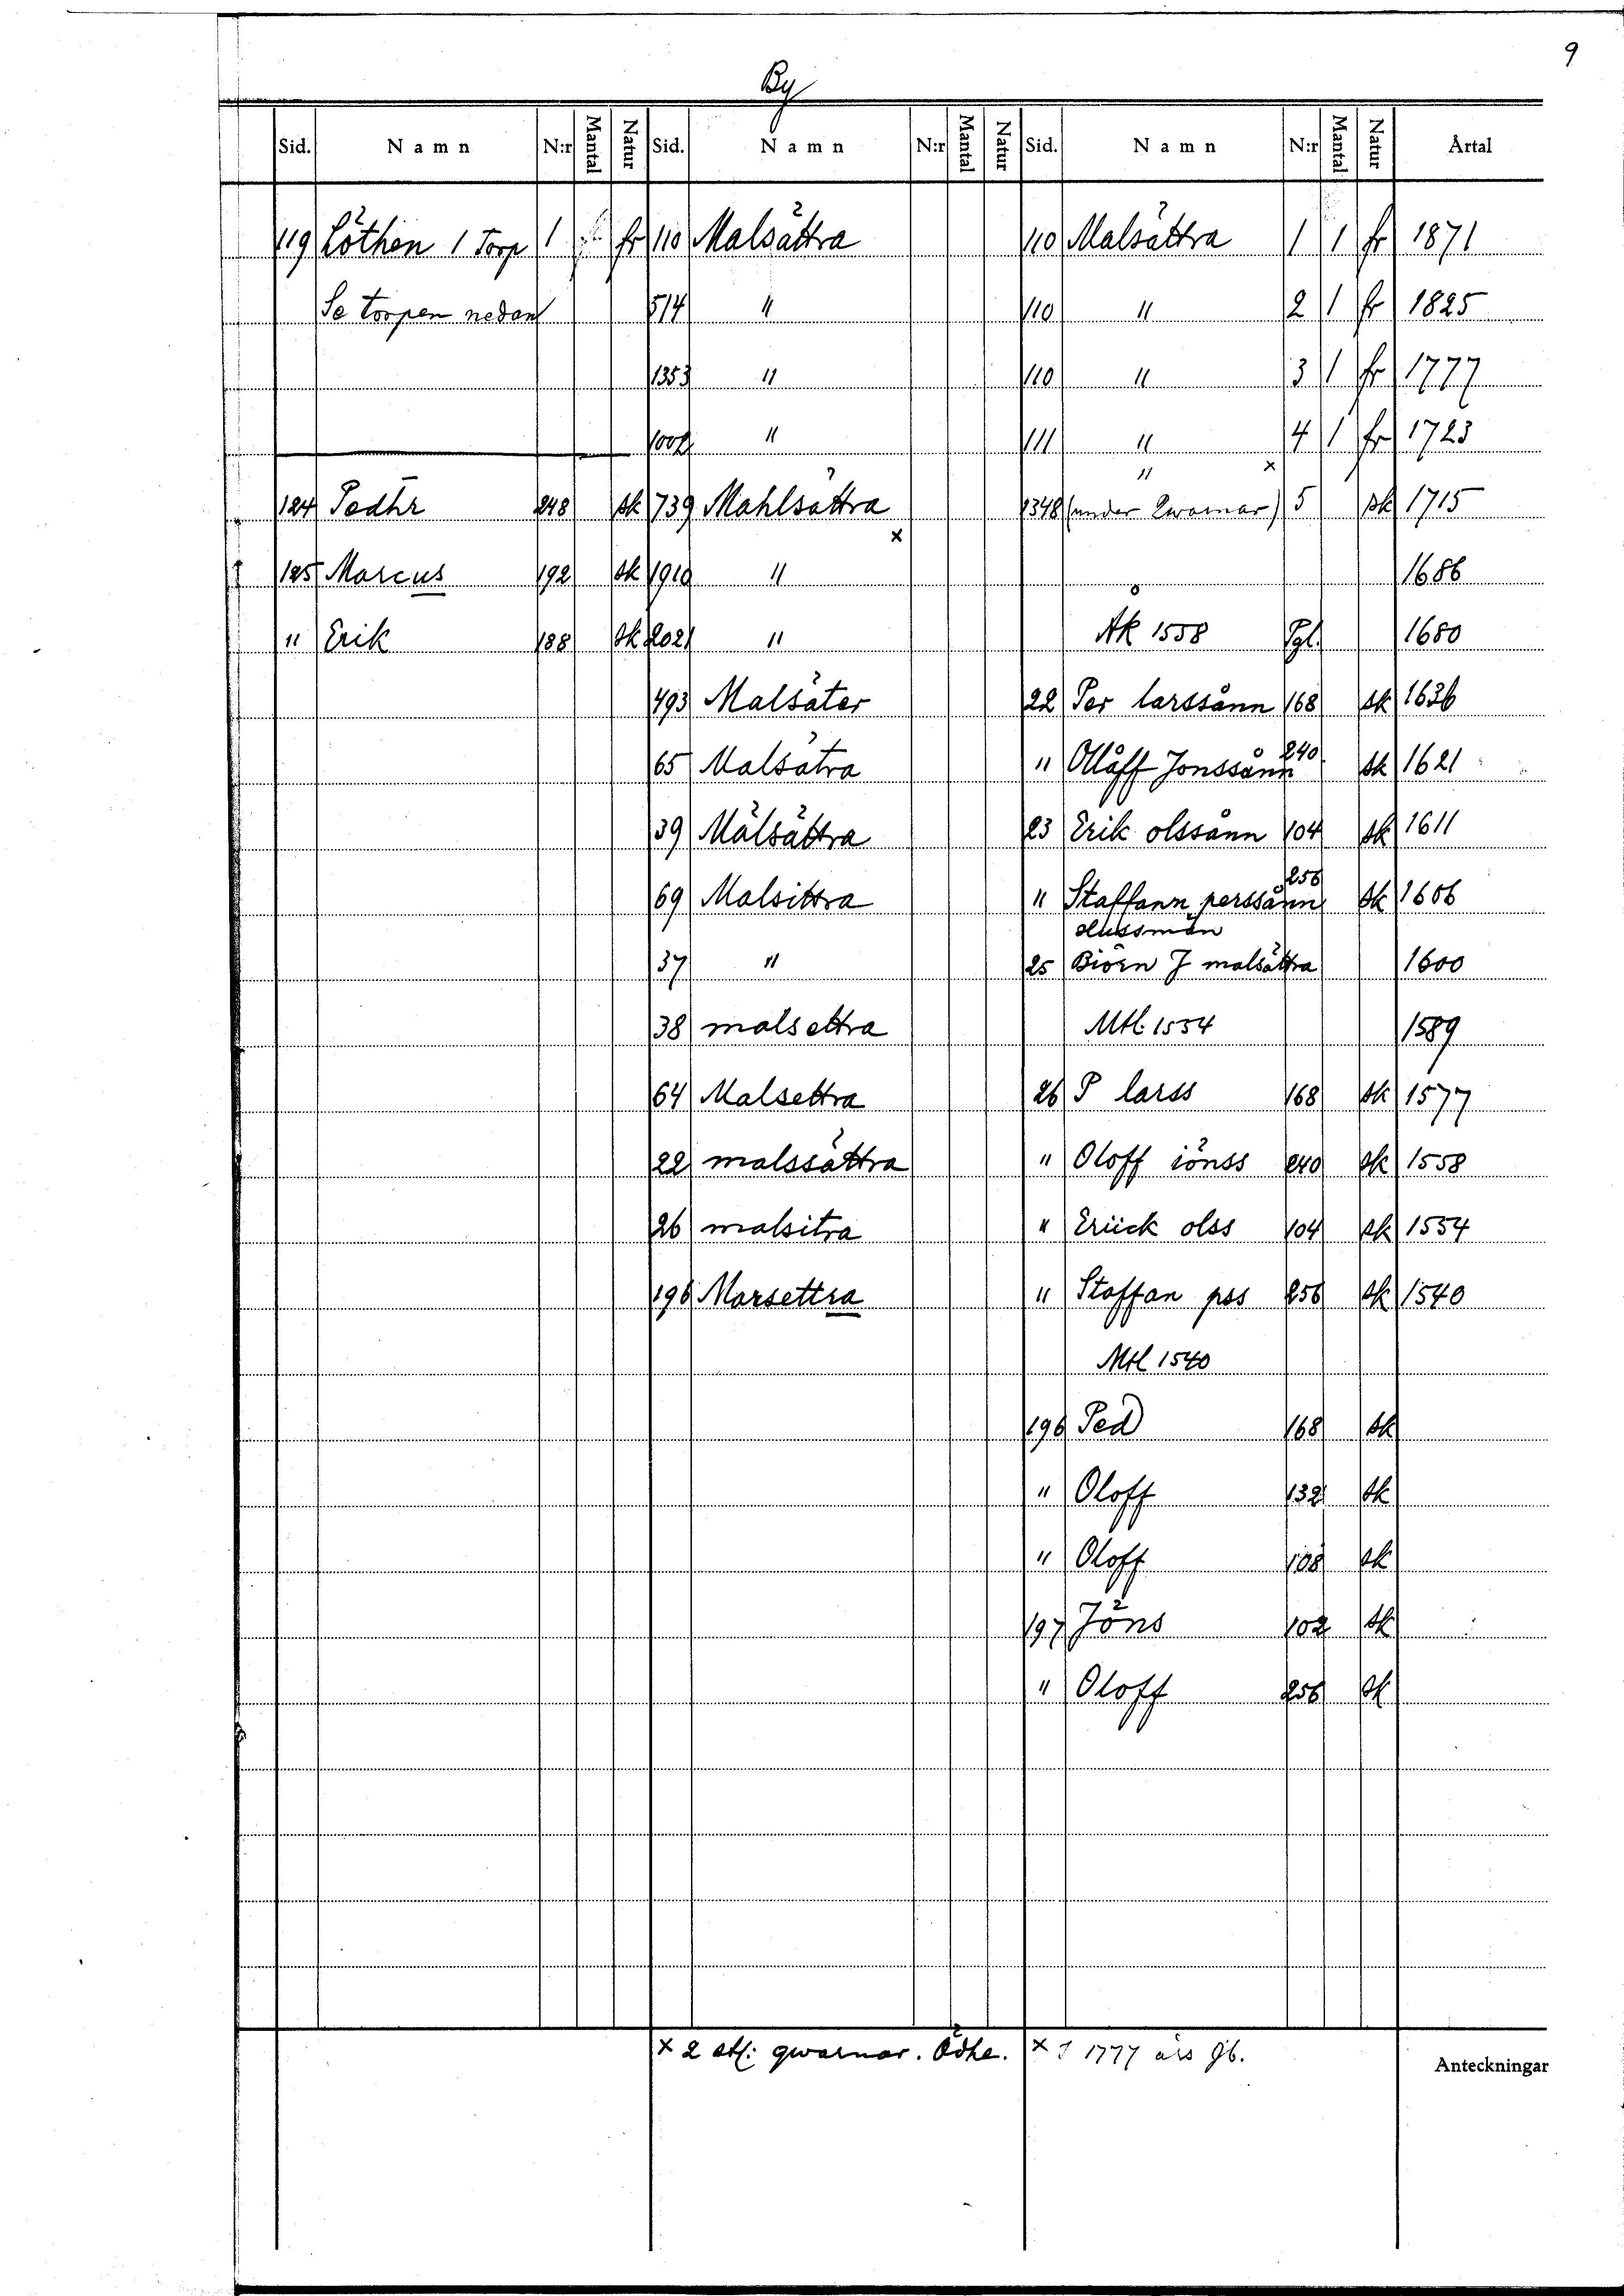 9
By
Sid. Namn N:r Mantal Natur Sid. Namn N:r Mantal Natur Sid. Namn N:r Mantal Natur Årtal
119 Löthen 1 Torp 1 fr 110 Malsättra 110 Malsättra 1 1 fr 1871
Se torpen nedan 514 " 110 " 2 1 fr 1825
1353 " 110 " 3 1 fr 1777
1002 " 111 " 4 1 fr 1723
" x
124 Pedhr 248 sk 739 Mahlsättra x 1348 (under Qwarnar) 5 sk 1715
125 Marcus 192 sk 1910 " 1686
" Erik 188 sk 2021 " Åk 1558 Pgl. 1680
493 Malsäter 22 Per larssånn 168 sk 1636
65 Malsätra " Ollåff Jonssånn 240 sk 1621
39 Mälsättra 23 Erik olssånn 104 sk 1611
69 Malsittra " Staffann perssånn 256 sk 1606
Hussmän
37 " 25 Biörn J malsättra 1600
38 malsettra Mtl. 1554 1589
64 Malsettra 26 P larss 168 sk 1577
22 malssättra " Oloff iönss 240 sk 1558
26 malsitra " Eriick olss 104 sk 1554
196 Marsettra " Staffan pss 256 sk 1540
Mtl 1540
196 Ped 168 sk
" Oloff 132 sk
" Oloff 108 sk
197 Jöns 102 sk
" Oloff 256 sk
x 2 st: qwarnar. Ödhe. x I 1777 års Jb.
Anteckningar